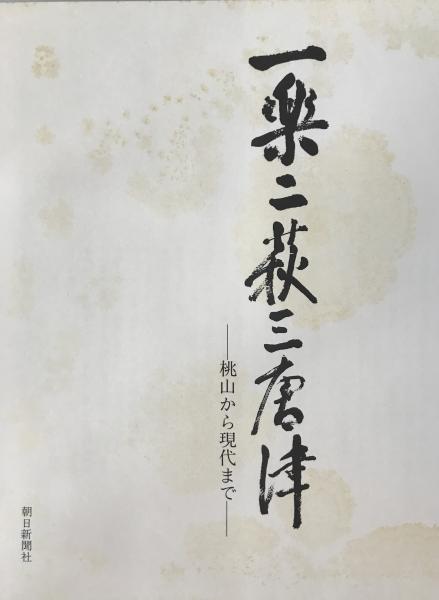 一楽二萩三唐津
——桃山から現代まで——
朝日新聞社